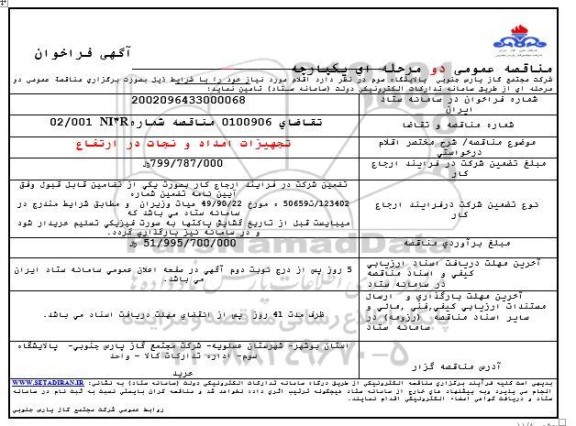 آگهی فراخوان
مناقصه عمومی دو مرحله ای یکپارچه
شرکت مجتمع گاز پارس جنوبی پالایشگاه سوم در نظر دارد اقلام مورد نیاز خود را با شرایط ذیل بصورت برگزاری مناقصه عمومی دو
مرحله ای از طریق سامانه تدارکات الکترونیکی دولت (سامانه ستاد) تامین نماید:
شماره فراخوان در سامانه ستاد ایران
2002096433000068
شماره مناقصه و تقاضا
تقاضای 0100906 مناقصه شماره NI*R 02/001
موضوع مناقصه/ شرح مختصر اقلام درخواستی
تجهیزات امداد و نجات در ارتفاع
مبلغ تضمین شرکت در فرایند ارجاع کار
799/787/000 ریال
نوع تضمین شرکت درفرایند ارجاع کار
تضمین شرکت در فرایند ارجاع کار بصورت یکی از تضامین قابل قبول وفق
آیین نامه تضمین شماره
123402/ت50659 ه مورخ 49/90/22 هیات وزیران و مطابق شرایط مندرج در
سامانه ستاد می باشد که
میبایست قبل از تاریخ گشایش پاکتها به صورت فیزیکی تسلیم خریدار شود
و در سامانه نیز بارگذاری گردد.
مبلغ برآوردی مناقصه
51/995/700/000 ریال
آخرین مهلت دریافت اسناد ارزیابی
کیفی و اسناد مناقصه
در سامانه ستاد
5 روز پس از درج نوبت دوم آگهی در صفحه اعلان عمومی سامانه ستاد ایران
می باشد.
آخرین مهلت بارگذاری و ارسال
مستندات ارزیابی کیفی، فنی، مالی و
سایر اسناد مناقصه (رزومه) در
سامانه ستاد
ظرف مدت 41 روز پس از انقضای مهلت دریافت اسناد می باشد.
آدرس مناقصه گزار
استان بوشهر- شهرستان عسلویه- شرکت مجتمع گاز پارس جنوبی- پالایشگاه
سوم- اداره تدارکات کالا - واحد
خرید
بدیهی است کلیه فرآیند برگزاری مناقصه الکترونیکی از طریق درگاه سامانه تدارکات الکترونیکی دولت (سامانه ستاد) به نشانی: WWW.SETADIRAN.IR
انجام می پذیرد و به پیشنهاد های خارج از سامانه ستاد هیچگونه ترتیب اثری داده نخواهد شد و مناقصه گران بایستی نسبت به ثبت نام در سامانه
ستاد و دریافت گواهی امضاء الکترونیکی اقدام نمایند.
روابط عمومی شرکت مجتمع گاز پارس جنوبی
ParsNamadData